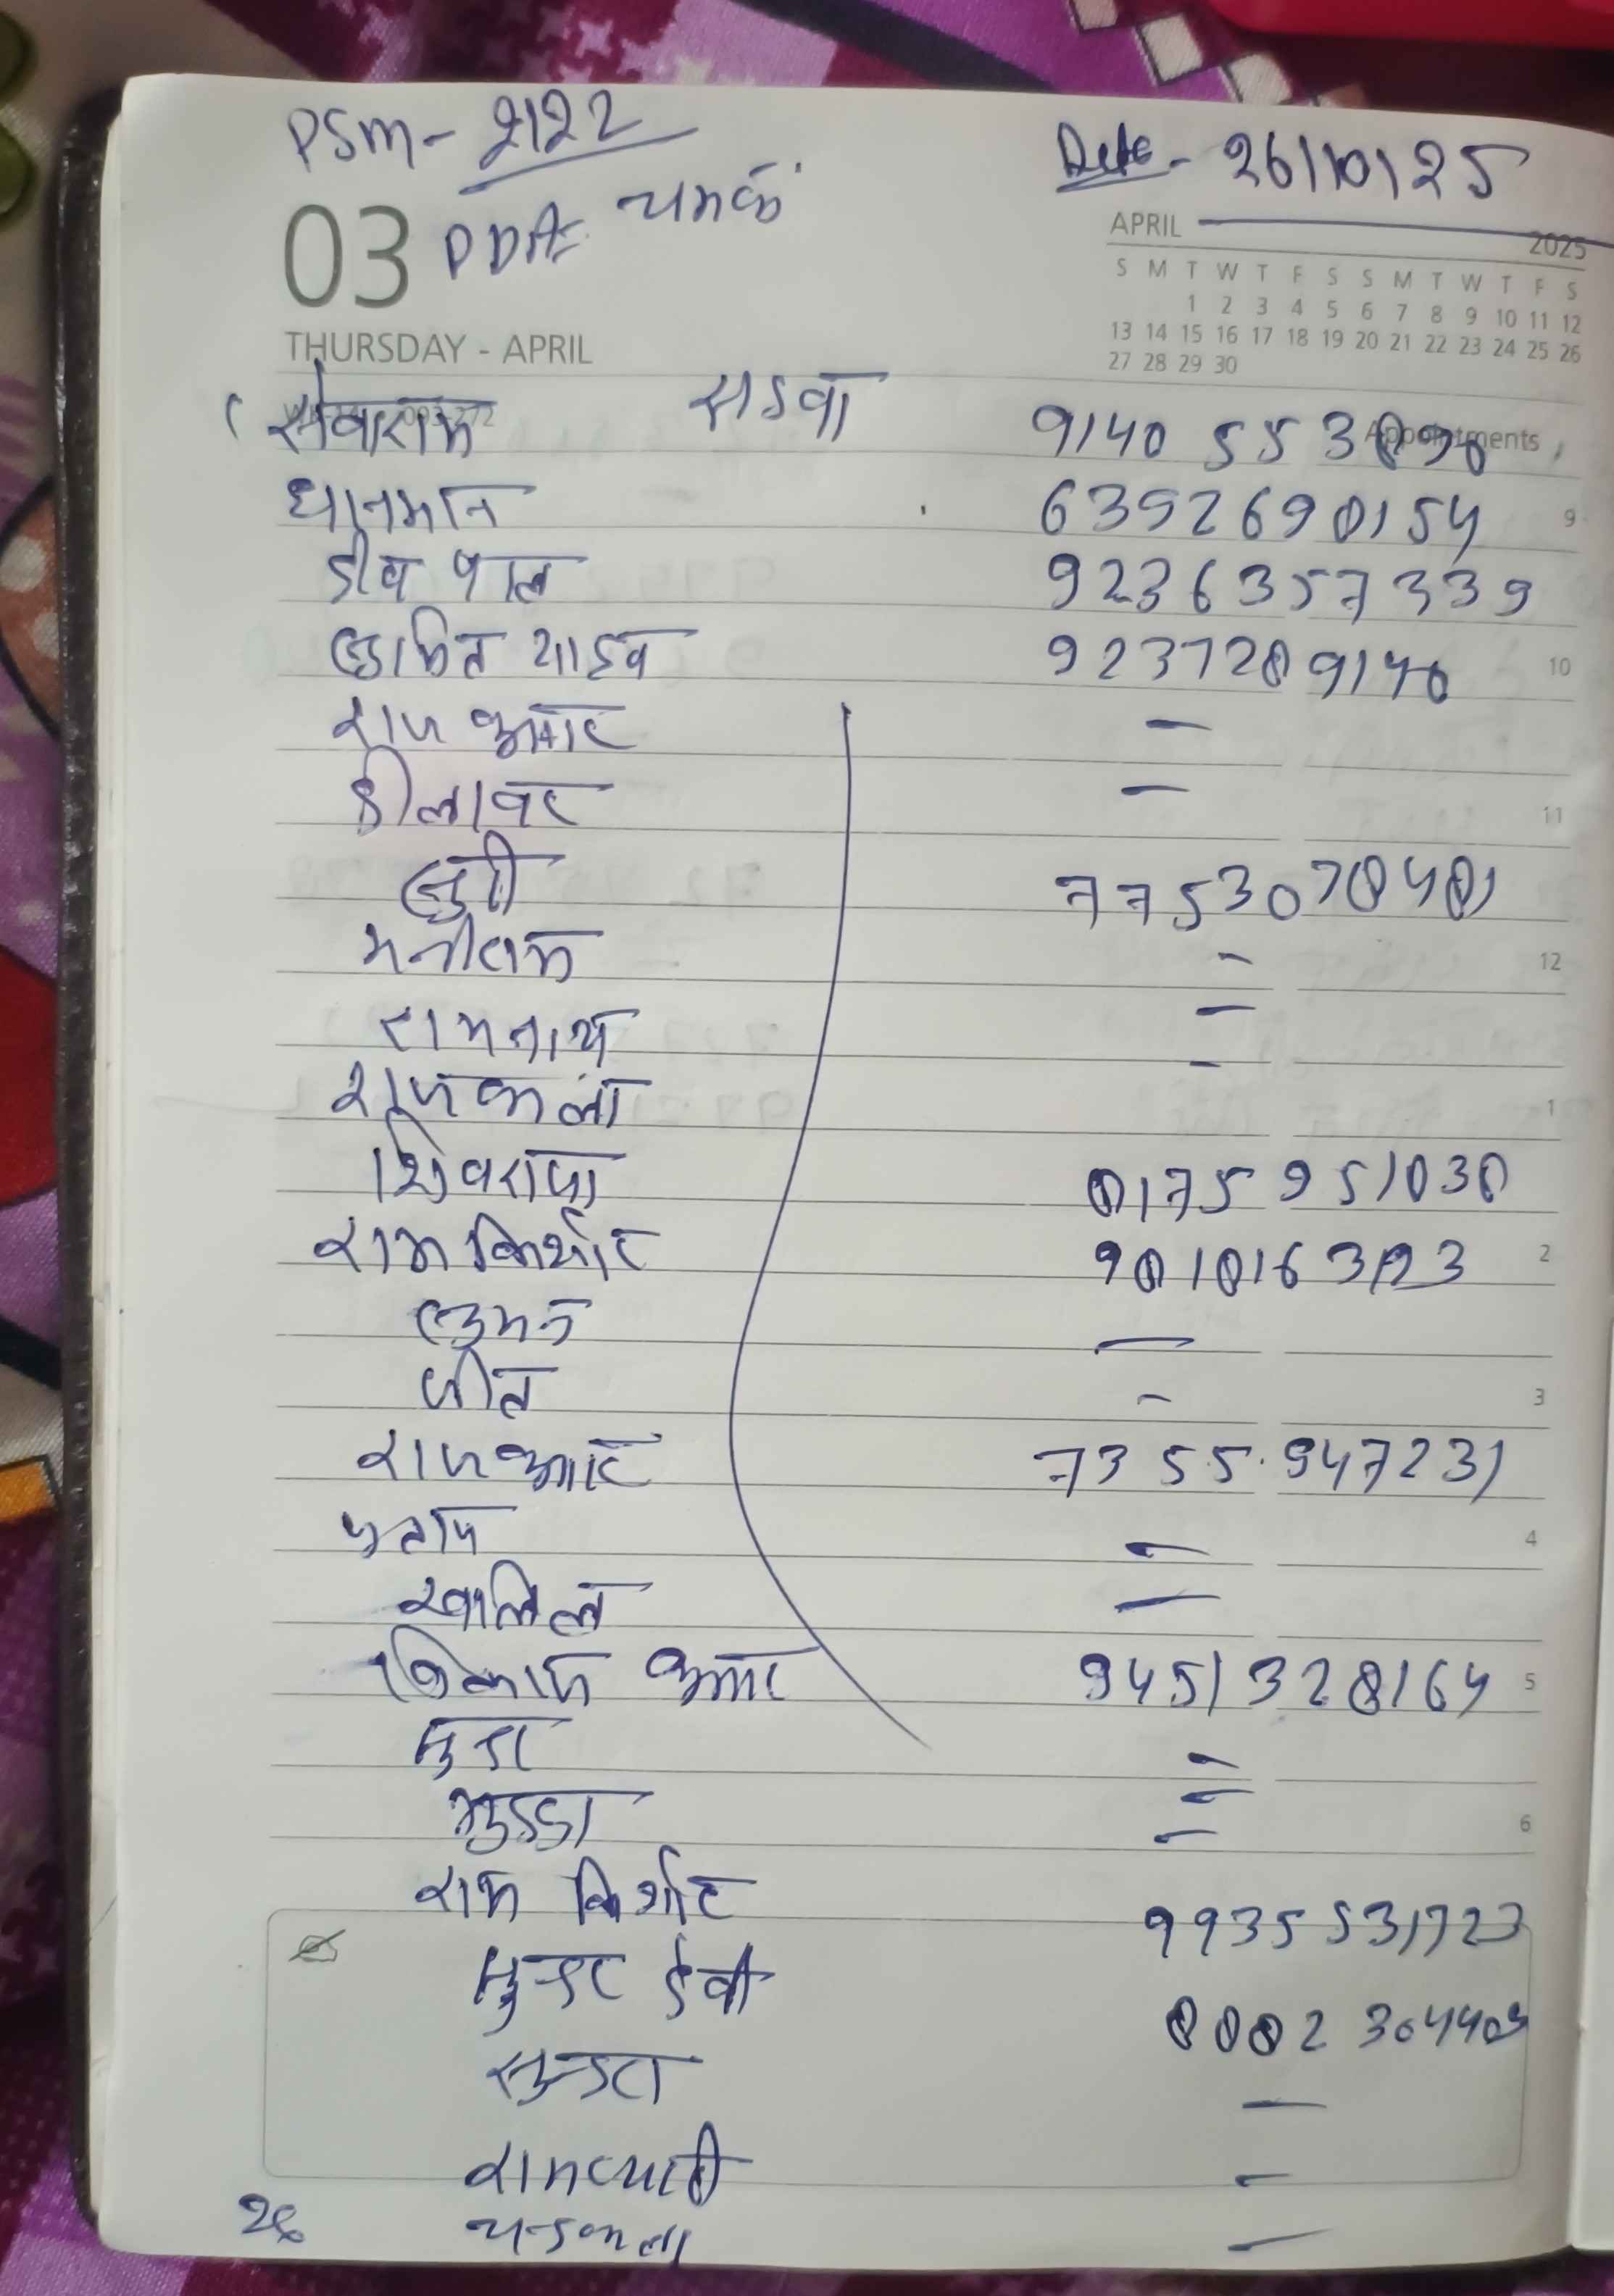 PSM- 2122
Date - 26/10/25
PDA चमके
APRIL 2025
S M T W T F S S M T W T F S
1 2 3 4 5 6 7 8 9 10 11 12
13 14 15 16 17 18 19 20 21 22 23 24 25 26
27 28 29 30
03
THURSDAY - APRIL
Appointments
सेवाराम सडवा
धानमान 6392690154
डीव पाल 9236357339
यादव 9237289140
राज कुमार —
डीलावर —
7753078481
मनीराम -
रामनाथ —
राजकला -
शिवराजा 8175951030
राम किशोर
सुमन —
जीत -
राजकुमार 7355947231
प्रताप —
खलिल —
विकास कुमार 9451328164
=
गुड्डा =
राम किशोर
देवी 9935531723
सुन्दरा —
रामप्यारी -
चन्डकला —
26
9
10
11
12
1
2
3
4
5
6